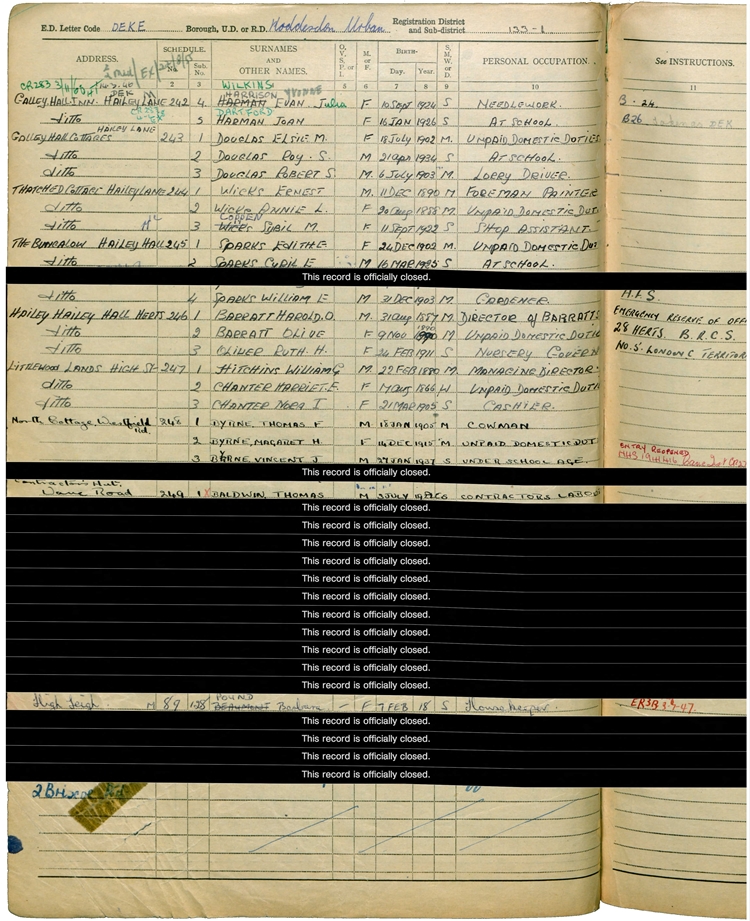 E.D. Letter Code DEKE Borough, U.D. or R.D. Hoddesdon Urban Registration District and Sub-district 133-1
ADDRESS. SCHEDULE. No. Sub. No. SURNAMES AND OTHER NAMES. O, V, S, P, or I. M. or F. BIRTH— Day. Year. S, M, W, or D. PERSONAL OCCUPATION. See INSTRUCTIONS.
1 2 3 4 5 6 7 8 9 10 11
CR283 DEK
WILKINS
HARRISON YVONNE
GALLEY HALL INN. HAILEY LANE 242 4. HARMAN EVAN. Julia F 10 SEPT 1924 S NEEDLEWORK. B. 24.
DARTFORD
ditto 5 HARMAN JOAN F 16 JAN 1926 S AT SCHOOL. B26 DEK
HAILEY LANE
GALLEY HALL COTTAGES 243 1 DOUGLAS ELSIE M. F 18 JULY 1902 M. UNPAID DOMESTIC DUTIES
ditto 2 DOUGLAS ROY. S. M 21 APR 1934 S AT SCHOOL.
ditto 3 DOUGLAS ROBERT S. M 6 JULY 1903 M. LORRY DRIVER.
THATCHED COTTAGE HAILEY LANE 244 1 WICKS ERNEST M. 11 DEC 1890 M FOREMAN PAINTER
ditto 2 WICKS ANNIE L. F 20 AUG 1888 M UNPAID DOMESTIC DUT
ditto 3 WICKS SYBIL M. F 11 SEPT 1922 S SHOP ASSISTANT.
THE BUNGALOW HAILEY HALL 245 1 SPARKS EDITH E F 24 DEC 1902 M. UNPAID DOMESTIC DUT
ditto 2 SPARKS CYRIL E M 16 MAR 1925 S AT SCHOOL.
This record is officially closed.
ditto 4 SPARKS WILLIAM E M. 31 DEC 1903 M. GARDENER. A.F.S.
HAILEY HAILEY HALL HERTS 246 1 BARRATT HAROLD. O. M. 31 AUG 1887 M. DIRECTOR OF BARRATTS EMERGENCY RESERVE OF OFF
ditto 2 BARRATT OLIVE F 9 NOV 1890 M UNPAID DOMESTIC DUTIE 28 HERTS. B.R.C.S.
ditto 3 OLIVER RUTH. H. F 24 FEB 1911 S NURSERY GOVERN NO. 5. LONDON C TERRITOR
LITTLEWOOD LANDS HIGH ST 247 1 HITCHINS WILLIAM G M. 22 FEB 1880 M. MANAGING DIRECTOR.
ditto 2 CHANTER HARRIET. E. F 1 AUG 1866 W UNPAID DOMESTIC DUTIE
ditto 3 CHANTER NORA I F 21 MAR 1905 S CASHIER.
North Cottage, Westfield Rd. 248 1 BYRNE, THOMAS F M. 18 JAN 1905 M COWMAN
2 BYRNE, MAGARET H. F 14 DEC 1915 M. UNPAID DOMESTIC DUT.
3 BYRNE, VINCENT J. M 27 JAN 1937 S UNDER SCHOOL AGE. ENTRY REOPENED
This record is officially closed.
Contractors Hut,
Dane Road 249 1 X BALDWIN, THOMAS M 3 JULY S CONTRACTORS LABOU
This record is officially closed.
This record is officially closed.
This record is officially closed.
This record is officially closed.
This record is officially closed.
This record is officially closed.
This record is officially closed.
This record is officially closed.
This record is officially closed.
This record is officially closed.
This record is officially closed.
POUND
High Leigh. M 89 128 BEAUMONT Barbara — F 7 FEB 18 S Housekeeper. ER3B
This record is officially closed.
This record is officially closed.
This record is officially closed.
This record is officially closed.
2 Briscoe Rd